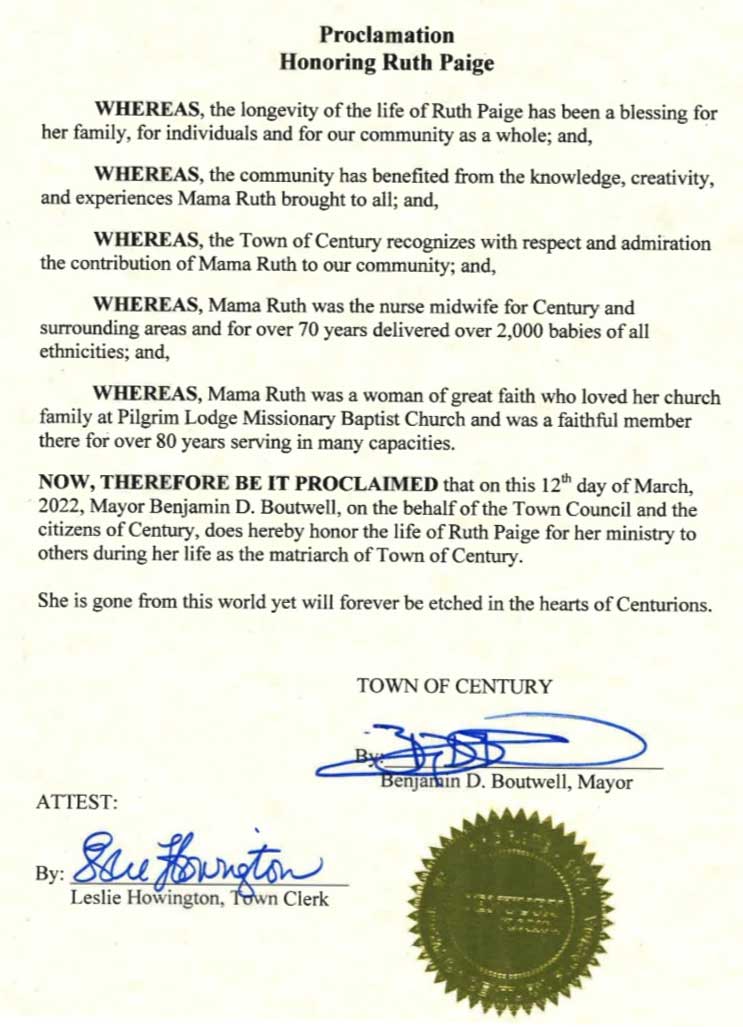 Proclamation
Honoring Ruth Paige
WHEREAS, the longevity of the life of Ruth Paige has been a blessing for
her family, for individuals and for our community as a whole; and,
WHEREAS, the community has benefited from the knowledge, creativity,
and experiences Mama Ruth brought to all; and,
WHEREAS, the Town of Century recognizes with respect and admiration
the contribution of Mama Ruth to our community; and,
WHEREAS, Mama Ruth was the nurse midwife for Century and
surrounding areas and for over 70 years delivered over 2,000 babies of all
ethnicities; and,
WHEREAS, Mama Ruth was a woman of great faith who loved her church
family at Pilgrim Lodge Missionary Baptist Church and was a faithful member
there for over 80 years serving in many capacities.
NOW, THEREFORE BE IT PROCLAIMED that on this 12th day of March,
2022, Mayor Benjamin D. Boutwell, on the behalf of the Town Council and the
citizens of Century, does hereby honor the life of Ruth Paige for her ministry to
others during her life as the matriarch of Town of Century.
She is gone from this world yet will forever be etched in the hearts of Centurions.
TOWN OF CENTURY
By:
Benjamin D. Boutwell, Mayor
ATTEST:
By: Howington
Leslie Howington, Town Clerk